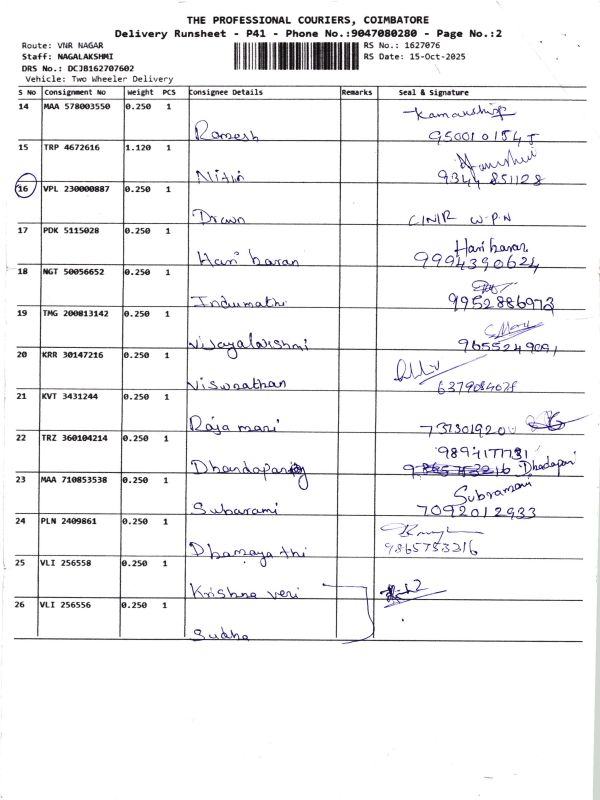 THE PROFESSIONAL COURIERS, COIMBATORE
Delivery Runsheet - P41 - Phone No.:9047080280 - Page No.:2
Route: VNR NAGAR
RS No.: 1627076
Staff: NAGALAKSHMI
RS Date: 15-Oct-2025
DRS No.: DCJB162707602
Vehicle: Two Wheeler Delivery
S No Consignment No Weight PCS Consignee Details Remarks Seal & Signature
14 MAA 578003550 0.250 1
Ramesh
15 TRP 4672616 1.120 1
Nithin 9344 851128
16 VPL 230000887 0.250 1
Drawn
17 PDK 5115028 0.250 1 Hari baran
Hari baran 9994390624
18 NGT 50056652 0.250 1
Indumathi 9952886973
19 TMG 200813142 0.250 1
Vijayalakshmi 9655249091
20 KRR 30147216 0.250 1
Viswanathan
21 KVT 3431244 0.250 1
Raja mani
22 TRZ 360104214 0.250 1
Dhandapani
23 MAA 710853538 0.250 1 Subramani
7092012933
24 PLN 2409861 0.250 1
Dhamayathi 9865753216
25 VLI 256558 0.250 1
Krishna veri
26 VLI 256556 0.250 1
Sudha